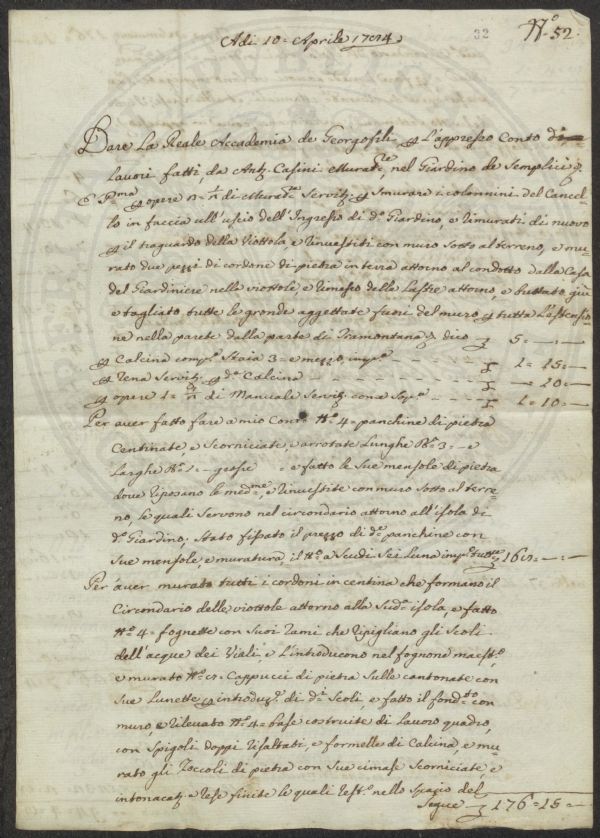 32
N.º 52.
Adi 10 = Aprile 1794
Dare La Reale Accademia de Georgofili, p L'appresso Conto di
Lavori fatti, da Ant.º Casini Murat.re nel Giardino de Semplici p.
E P.ma p opere n di Murat.re Servit. p Smurare i colonnini del Cancel-
lo in faccia all'usio dell'Ingresso di d.º Giardino, e rimurati di nuovo
p il traguardo della Viottola e rinvestiti con muro Sotto al terreno, e mu-
rato due pezzi di cordone di pietra in terra attorno al condotto della Casa
del Giardiniere nelle viottole, e rimesso delle Lastre attorno, e buttato giù
e tagliato tutte le gronde aggettate fuori del muro p tutta L'estensio
ne nella parete dalla parte di Tramontana p dico £ 5 = — —
p Calcina comp.ª Staia 3 = e mezzo imp.ª £ 2 = 15 = —
p Rena Servit. p d.ª Calcina £ — = 10 = —
p opere 1 = di Manuale Servit. come Sop.ª £ 1 = 10 = —
Per aver fatto fare a mio Conto N.º 4 = panchine di pietra
Centinate, e Scorniciate, e arrotate Lunghe B.ª 3 = e
Larghe B.ª 1 = e fatto le Sue mensole di pietra
dove riposano le med.me, e rinvestite con muro Sotto al terre-
no, le quali Servono nel circondario attorno all'isola di
d.º Giardino, Stato fissato il prezzo di d.e panchine con
Sue mensole, e muratura, il N.º a Scudi Sei L'una imp.º tutte £ 168 = — —
Per aver murato tutti i cordoni in centina che formano il
Circondario delle viottole attorno alla Sud.ª isola, e fatto
N.º 4 = fognette con Suoi rami che ripigliano gli Scoli
dell'acque dei Viali, e L'introducono nel fognone maest.º
e murato N.º Cappucci di pietra Sulle cantonate con
Sue Lunette p introduz.e di d.i Scoli, e fatto il fond.to con
muro, e rilevato N.º 4 = base costruite di Lavoro quadro,
con Spigoli doppi risaltati, e formelle di Calcina, e mu-
rato gli Zoccoli di pietra con Sue cimase Scorniciate, e
intonacat. e rese finite le quali rest.º nello Spazio del
Segue £ 176 = 15 = —